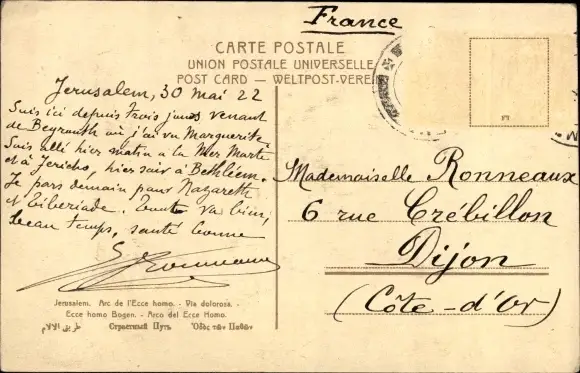 France
CARTE POSTALE
UNION POSTALE UNIVERSELLE
POST CARD — WELTPOST-VEREI
Jerusalem, 30 Mai 22
Suis ici depuis trois jours venant
de Beyrouth où j'ai vu Marguerite.
Suis allé hier matin a la Mer Morte
et à Jéricho, hier soir à Bethléem.
Je pars demain pour Nazareth
et Tibériade. Toute va bien,
beau temps, santé bonne
Ronneaux
Mademoiselle Ronneaux
6 rue Crébillon
Dijon
(Côte-d'Or)
Jerusalem. Arc de l'Ecce homo. - Via dolorosa. -
Ecce homo Bogen. - Arco del Ecce Homo.
طريق الالام Страстный Путь Ὁδὸς τῶν Παθῶν